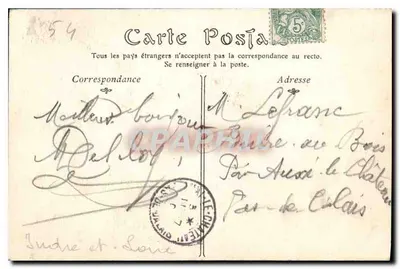 54
Carte Postale
5
Tous les pays étrangers n'acceptent pas la correspondance au recto.
Se renseigner à la poste.
Correspondance
Adresse
Meilleur bonjour
M. Lefranc
au Bois
Par Auxi le Château
Pas-de-Calais
CARTHAPHILIE
LE-CHATEAU
Indre et Loire